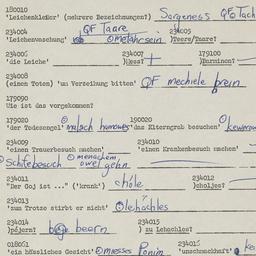 180010
'Leichenkleider' (mehrere Bezeichnungen?) Sargeness
234004 QF Taare 234005
'Leichenwaschung' metahrsein )Teere/Taare?
234006 234007 179100
'die Leiche' )Mess? + )Barminen?
234008
(einen Toten) 'um Verzeihung bitten' QF mechiele prein
179090
Wie ist das vorgekommen?
179020 190020
'der Todesengel' malech hamowes 'das Elterngrab besuchen'
234009 234010
'einen Trauerbesuch machen' menachem 'einen Krankenbesuch machen'
owel gehn
234011 234012
"Der Goj ist ..." ('krank') chole )choljes?
234013
'zum Trotze stirbt er nicht' lehachles
234014 234015
)pejern? bearn ) zu Lehachles?
018061 234016
'ein hässliches Gesicht' miesses Ponim 'unschmackhaft'